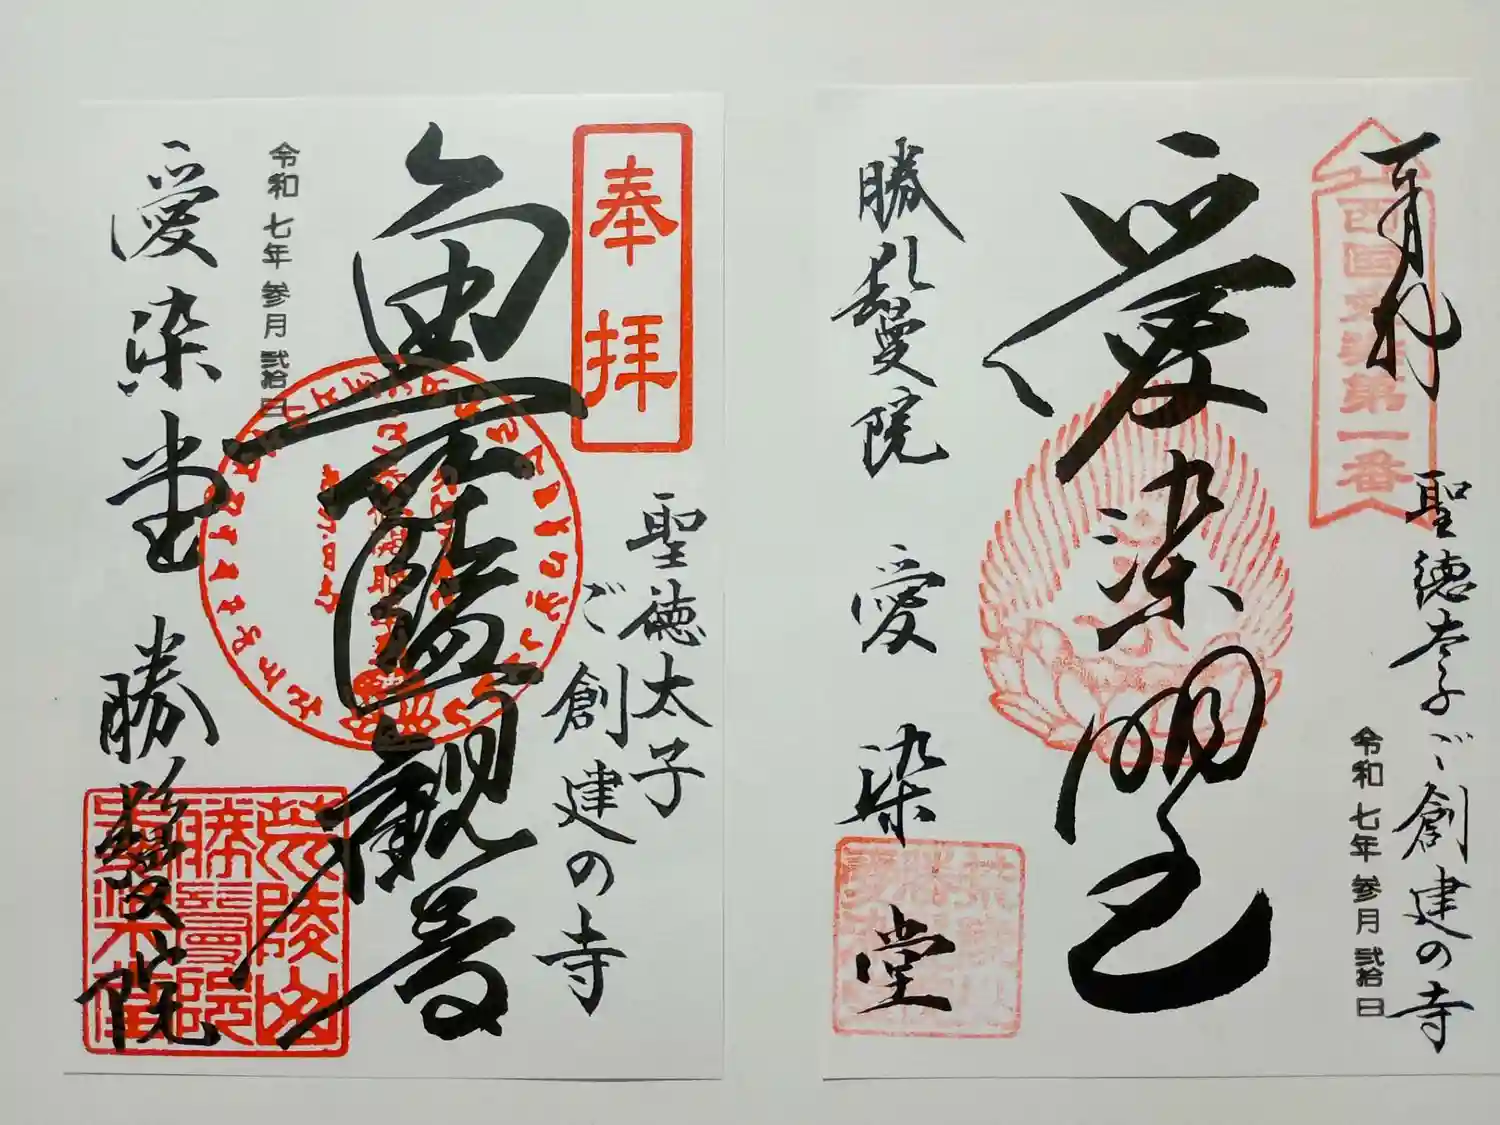 奉拝
聖徳太子
ご創建の寺
魚籃観音
令和七年参月弐拾日
愛染堂
勝鬘院
荒陵山
勝鬘院
愛染堂
奉拝
西国愛染第一番
聖徳太子ご創建の寺
令和七年参月弐拾日
愛染明王
勝鬘院
愛染堂